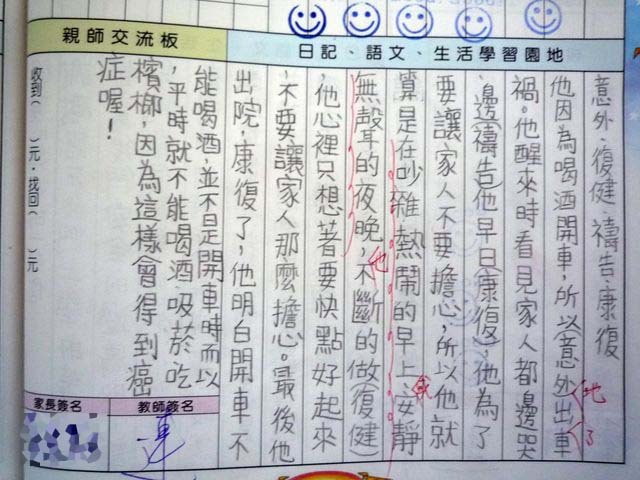 親師交流板
日記、語文、生活學習園地
意外、復健、禱告、康復
他因為喝酒開車,所以(意外)出車
禍。他醒來時看見家人都邊哭
邊禱告他早日(康復),他為了
要讓家人不要擔心,所以他就
算是在吵雜熱鬧的早上、安靜
無聲的夜晚,不斷的做(復健)
,他心裡只想著要快點好起來
,不要讓家人那麼擔心。最後他
出院,康復了,他明白開車不
能喝酒,並不是開車時而以
,平時就不能喝酒吸菸吃
檳榔,因為這樣會得到癌
症喔!
地
了
或
他
收到( )元,找回( )元
家長簽名
教師簽名